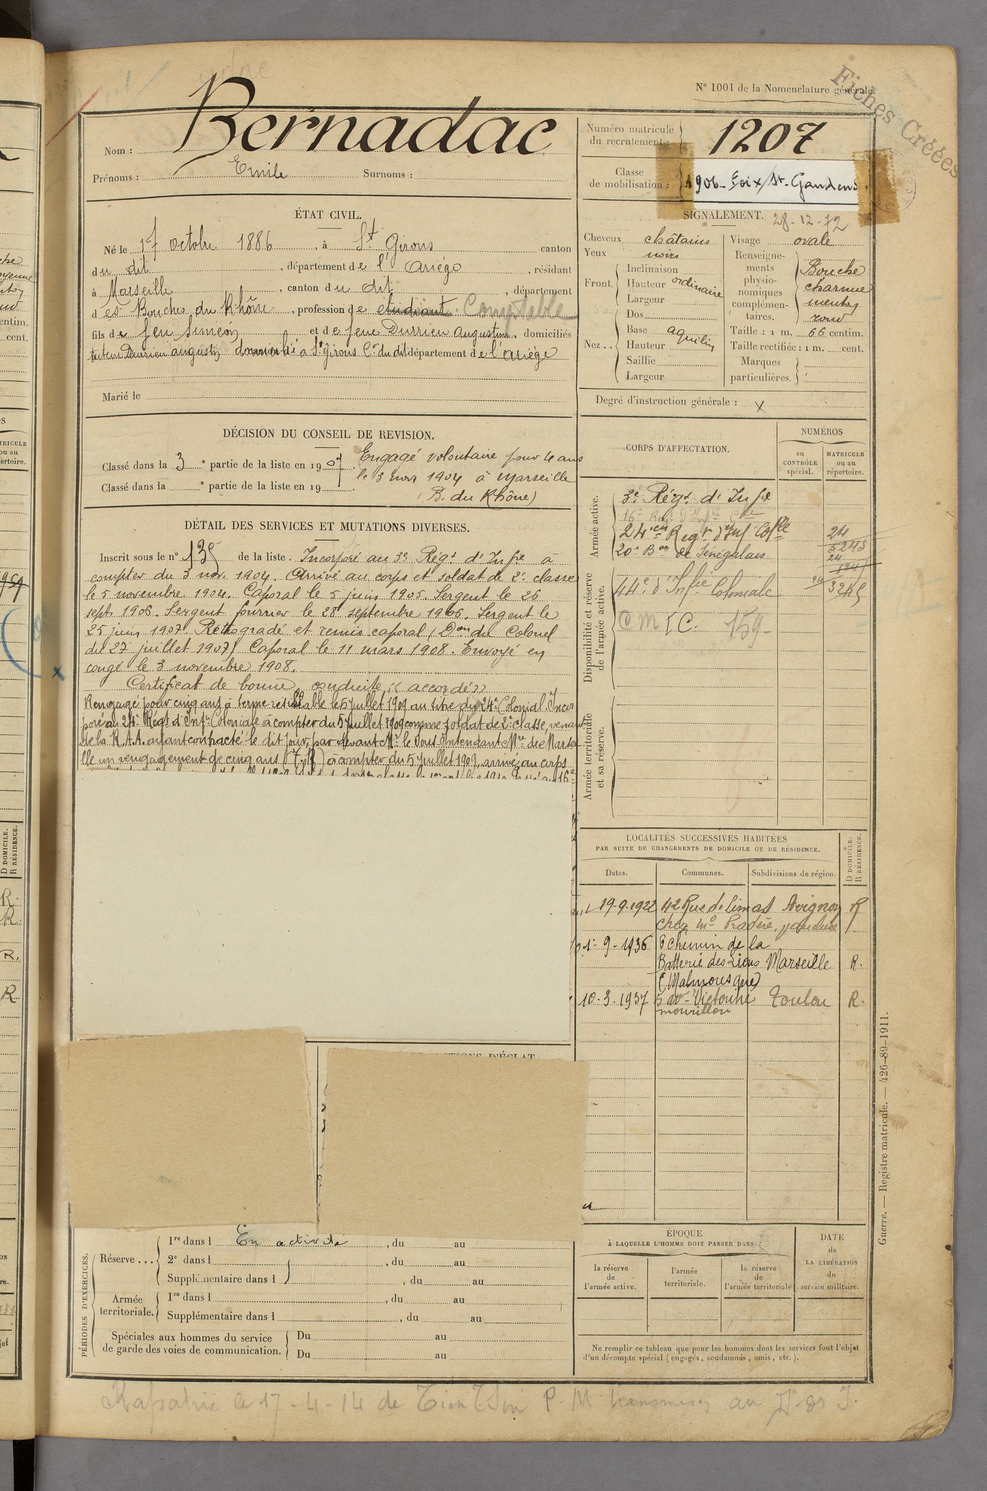 N° 1001 de la Nomenclature générale.
Fiches Créées
Nom : Bernadac
Prénoms : Emile Surnoms :
Numéro matricule du recrutement : 1207
Classe de mobilisation : 1906 - Foix/St-Gaudens
ÉTAT CIVIL.
Né le 17 octobre 1886, à St Girons canton
du dit, département de l'Ariège, résidant
à Marseille, canton du dit, département
des Bouches du Rhône, profession de etudiant Comptable
fils de feu Simeon et de feue Durrieu Augustine, domiciliés
tuteur Durrieu augustin domicilié à St Girons Con du dit département de l'ariège
Marié le
SIGNALEMENT. 28-12-12
Cheveux chatains
Yeux noirs
Front. Inclinaison
Hauteur ordinaire
Largeur
Nez.. Dos
Base aquilin
Hauteur
Saillie
Largeur
Visage ovale
Renseignements physionomiques complémentaires. Bouche charnue menton rond
Taille : 1 m. 66 centim.
Taille rectifiée : 1 m. cent.
Marques particulières.
Degré d'instruction générale : x
DÉCISION DU CONSEIL DE REVISION.
Classé dans la 3e partie de la liste en 1907. Engagé volontaire pour 4 ans
Classé dans la e partie de la liste en 19 le 3 nov 1904 à Marseille
(B. du Rhône)
DÉTAIL DES SERVICES ET MUTATIONS DIVERSES.
Inscrit sous le n° 135 de la liste. Incorporé au 3e Régt d'Infie à
compter du 3 nov. 1904. Arrivé au corps et soldat de 2e classe
le 5 novembre 1904. Caporal le 5 juin 1905. Sergent le 26
septe 1906. Sergent fourrier le 28 septembre 1906. Sergent le
25 juin 1907. Rétrogradé et remis caporal (Don du Colonel
du 27 juillet 1907) Caporal le 11 mars 1908. Envoyé en
congé le 3 novembre 1908.
Certificat de bonne conduite "accordé"
Rengagé pour cinq ans à terme résiliable le 5 juillet 1909 au titre du 24e Colonial. Incor
poré au 24e Régt d'Infie Coloniale à compter du 5 juillet 1909 comme soldat de 2e classe, venant
de la R.A.A. ayant contracté le dit jour par devant Mr le Sous Intendant Mre de Marse
lle un rengagement de cinq ans à compter du 5 juillet 1909, arrivé au corps
CORPS D'AFFECTATION.
NUMÉROS
au CONTRÔLE spécial.
MATRICULE ou au répertoire.
Armée active.
3e Régt d'Infie
24em Regt d'Inf Colle 24
20e Bon de Sénégalais
Disponibilité et réserve de l'armée active.
44e d'Infie Coloniale
C M I C. 159
Armée territoriale et sa réserve.
LOCALITÉS SUCCESSIVES HABITÉES
PAR SUITE DE CHANGEMENTS DE DOMICILE OU DE RÉSIDENCE.
Dates. Communes. Subdivisions de région. D DOMICILE. R RÉSIDENCE.
19-9-1922 42 Rue de limas Avignon R
1-9-1936 6 chemin de la
Batterie des Lions Marseille R.
(Malmousque)
10-3-1937 av- Victoire Toulon R.
mourillon
PÉRIODES D'EXERCICES.
Réserve... 1re dans l En activité, du au
2e dans l, du au
Supplémentaire dans l, du au
Armée territoriale. 1re dans l, du au
Supplémentaire dans l, du au
Spéciales aux hommes du service de garde des voies de communication. Du au
Du au
ÉPOQUE
À LAQUELLE L'HOMME DOIT PASSER DANS :
la réserve de l'armée active.
l'armée territoriale.
la réserve de l'armée territoriale
DATE DE LA LIBÉRATION du service militaire.
Ne remplir ce tableau que pour les hommes dont les services font l'objet
d'un décompte spécial (engagés, condamnés, omis, etc.).
Guerre. — Registre matricule. — 426-89-1911.
Rapatrié le 17-4-14 de Tien Tsin P. M transmises au